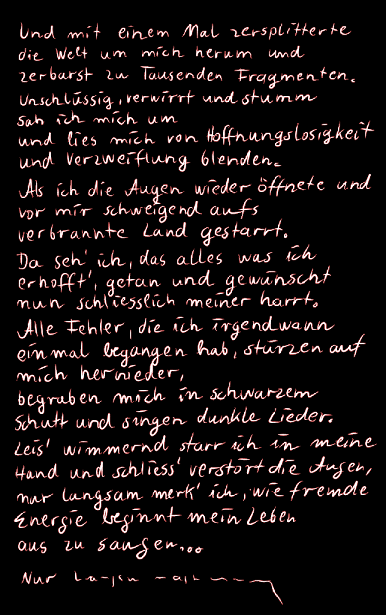 Und mit einem Mal zersplitterte
die Welt um mich herum und
zerbarst zu Tausenden Fragmenten.
Unschlüssig, verwirrt und stumm
sah ich mich um
und lies mich von Hoffnungslosigkeit
und Verzweiflung blenden.
Als ich die Augen wieder öffnete und
vor mir schweigend aufs
verbrannte Land gestarrt.
Da seh' ich, das alles was ich
erhofft', getan und gewünscht
nun schliesslich meiner harrt.
Alle Fehler, die ich irgendwann
einmal begangen hab, stürzen auf
mich hernieder,
begraben mich in schwarzem
Schutt und singen dunkle Lieder.
Leis' wimmernd starr ich in meine
Hand und schliess' verstört die Augen,
nur langsam merk' ich, wie fremde
Energie beginnt mein Leben
aus zu saugen...
Nur